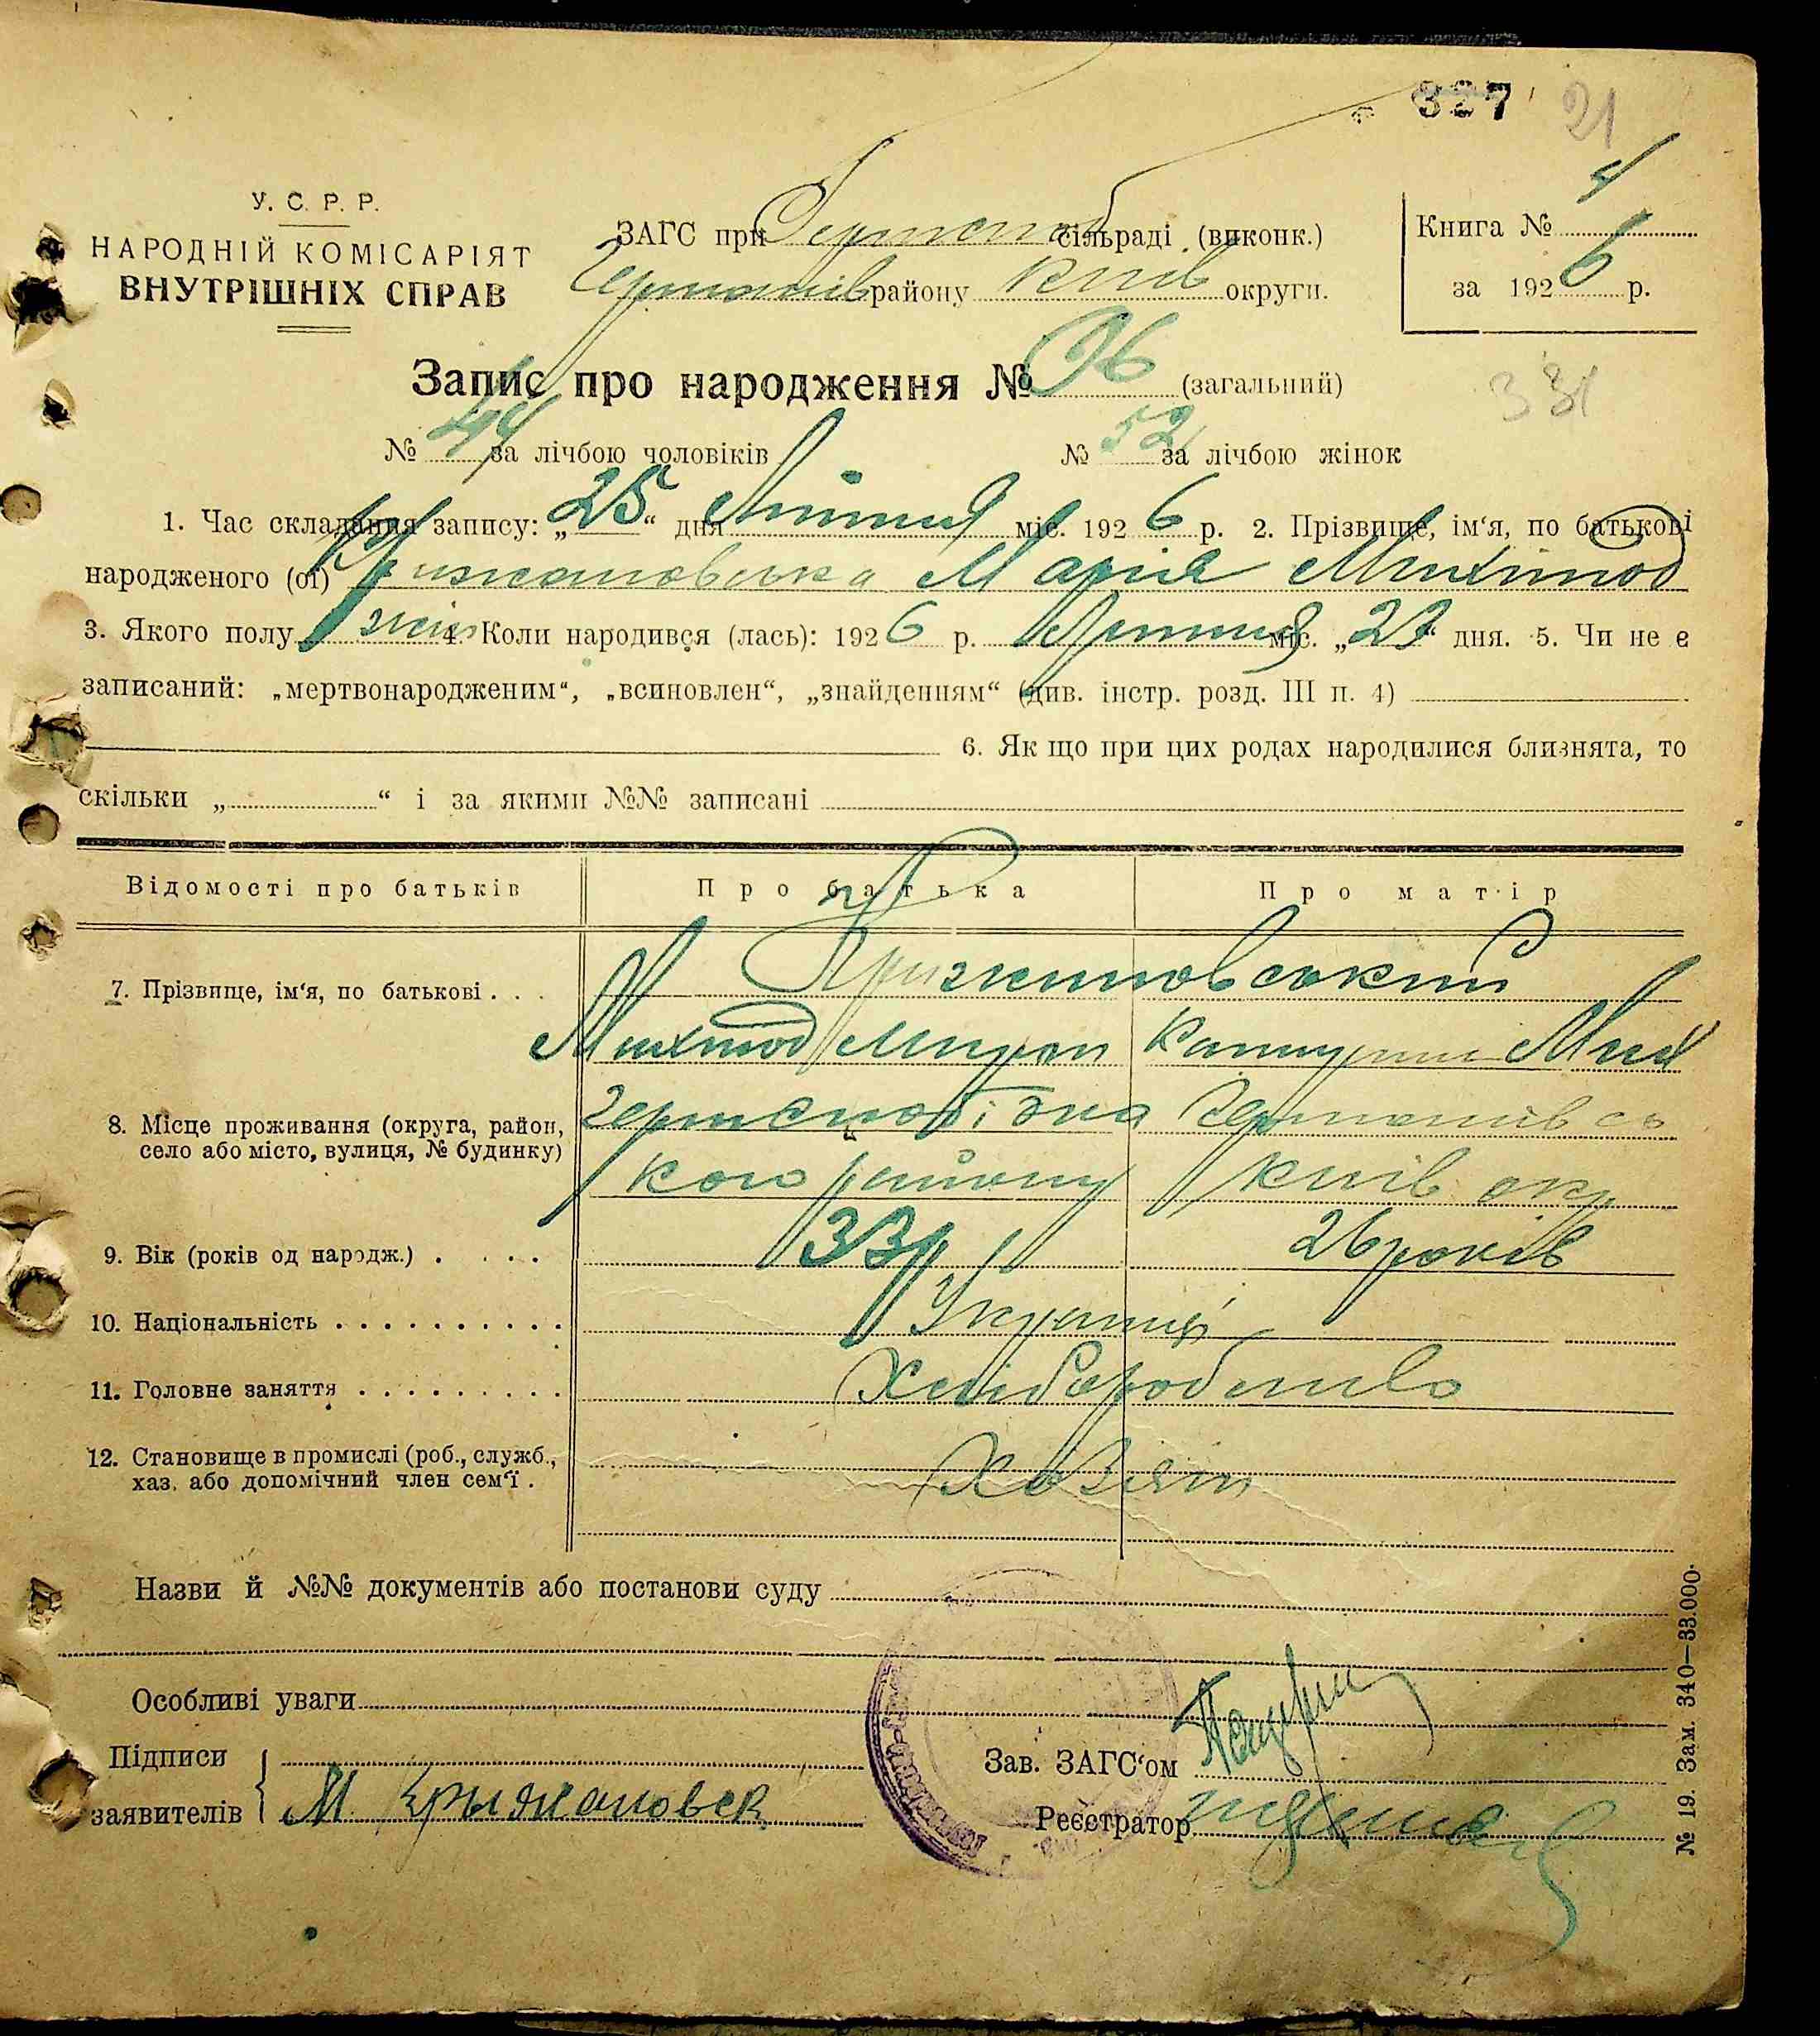 327 21
У. С. Р. Р.
НАРОДНІЙ КОМІСАРІЯТ
ВНУТРІШНІХ СПРАВ
ЗАГС при сільраді (виконк.)
району Київ округи.
Книга № 4
за 1926 р.
Запис про народження № 96 (загальний)
331
№ 44 за лічбою чоловіків № 52 за лічбою жінок
1. Час складання запису: „25“ дня Липня міс. 1926 р. 2. Прізвище, ім‘я, по батькові
народженого (ої) Крижановська Марія Михтод
3. Якого полу жін 4. Коли народився (лась): 1926 р. Липня міс. „23“ дня. 5. Чи не є
записаний: „мертвонародженим“, „всиновлен“, „знайденням“ (див. інстр. розд. III п. 4)
6. Як що при цих родах народилися близнята, то
скільки „ “ і за якими №№ записані
Відомості про батьків Про батька Про матір
7. Прізвище, ім‘я, по батькові . . . Крижановський
Михтод Мирон Катерина Мих
8. Місце проживання (округа, район,
село або місто, вулиця, № будинку)
кого району Київ окр
9. Вік (років од народж.) . . . . 33р 26 років
10. Національність . . . . . . . . . . Українці
11. Головне заняття . . . . . . . . . Хліборобство
12. Становище в промислі (роб., служб.,
хаз. або допомічний член сем‘ї . Хазяїн
Назви й №№ документів або постанови суду
Особливі уваги
Підписи
заявителів М Крыжановск
Зав. ЗАГС‘ом
Реєстратор
№ 19. Зам. 340—33.000.